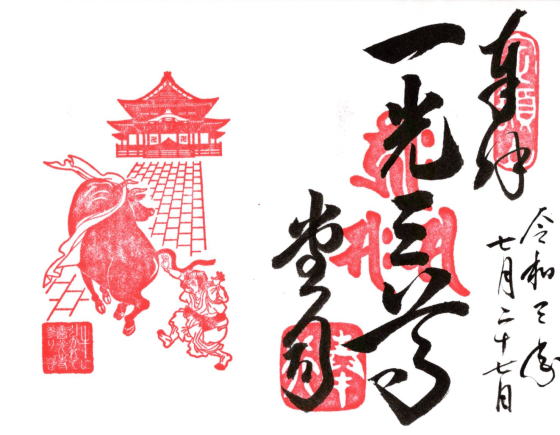 奉拝
一光三尊
堂司
令和三歳
七月二十七日
牛に
引かれて
善光寺
参り